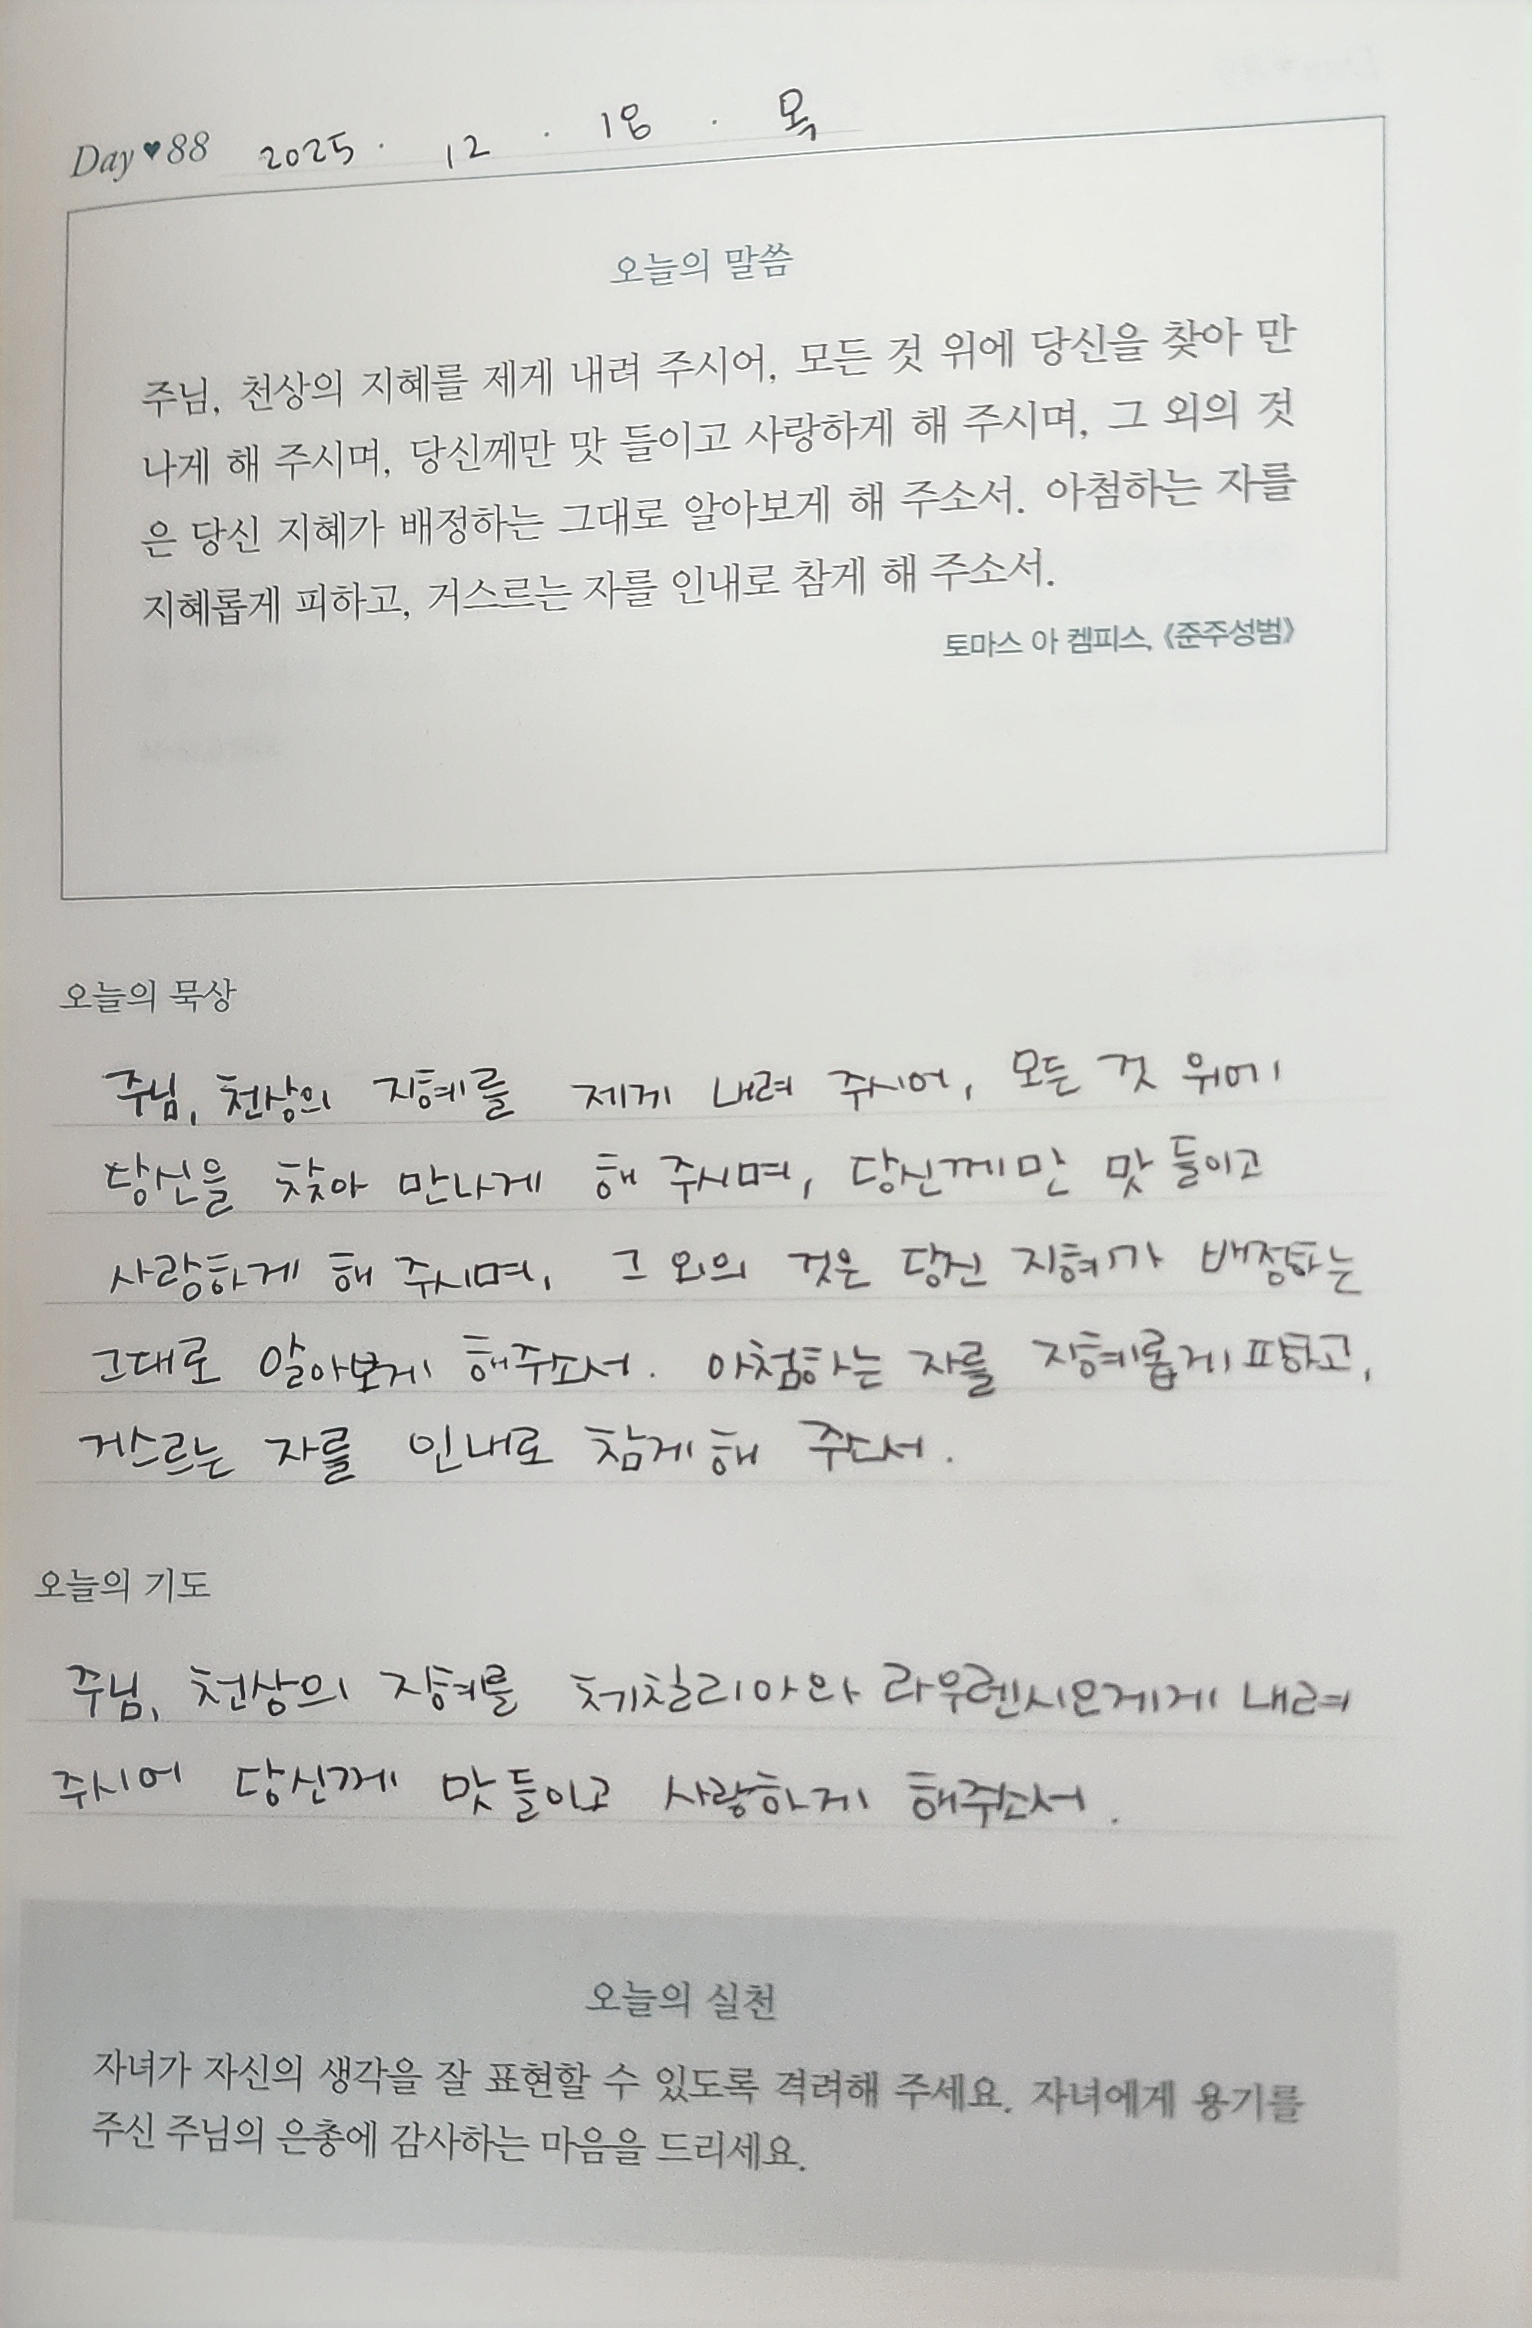 Day ♥ 88 2025. 12. 18. 목
오늘의 말씀
주님, 천상의 지혜를 제게 내려 주시어, 모든 것 위에 당신을 찾아 만
나게 해 주시며, 당신께만 맛 들이고 사랑하게 해 주시며, 그 외의 것
은 당신 지혜가 배정하는 그대로 알아보게 해 주소서. 아첨하는 자를
지혜롭게 피하고, 거스르는 자를 인내로 참게 해 주소서.
토마스 아 켐피스, 《준주성범》
오늘의 묵상
주님, 천상의 지혜를 제게 내려 주시어, 모든 것 위에
당신을 찾아 만나게 해 주시며, 당신께만 맛 들이고
사랑하게 해 주시며, 그 외의 것은 당신 지혜가 배정하는
그대로 알아보게 해주소서. 아첨하는 자를 지혜롭게 피하고,
거스르는 자를 인내로 참게 해 주소서.
오늘의 기도
주님, 천상의 지혜를 체칠리아와 라우렌시오에게 내려
주시어 당신께 맛 들이고 사랑하게 해주소서.
오늘의 실천
자녀가 자신의 생각을 잘 표현할 수 있도록 격려해 주세요. 자녀에게 용기를
주신 주님의 은총에 감사하는 마음을 드리세요.